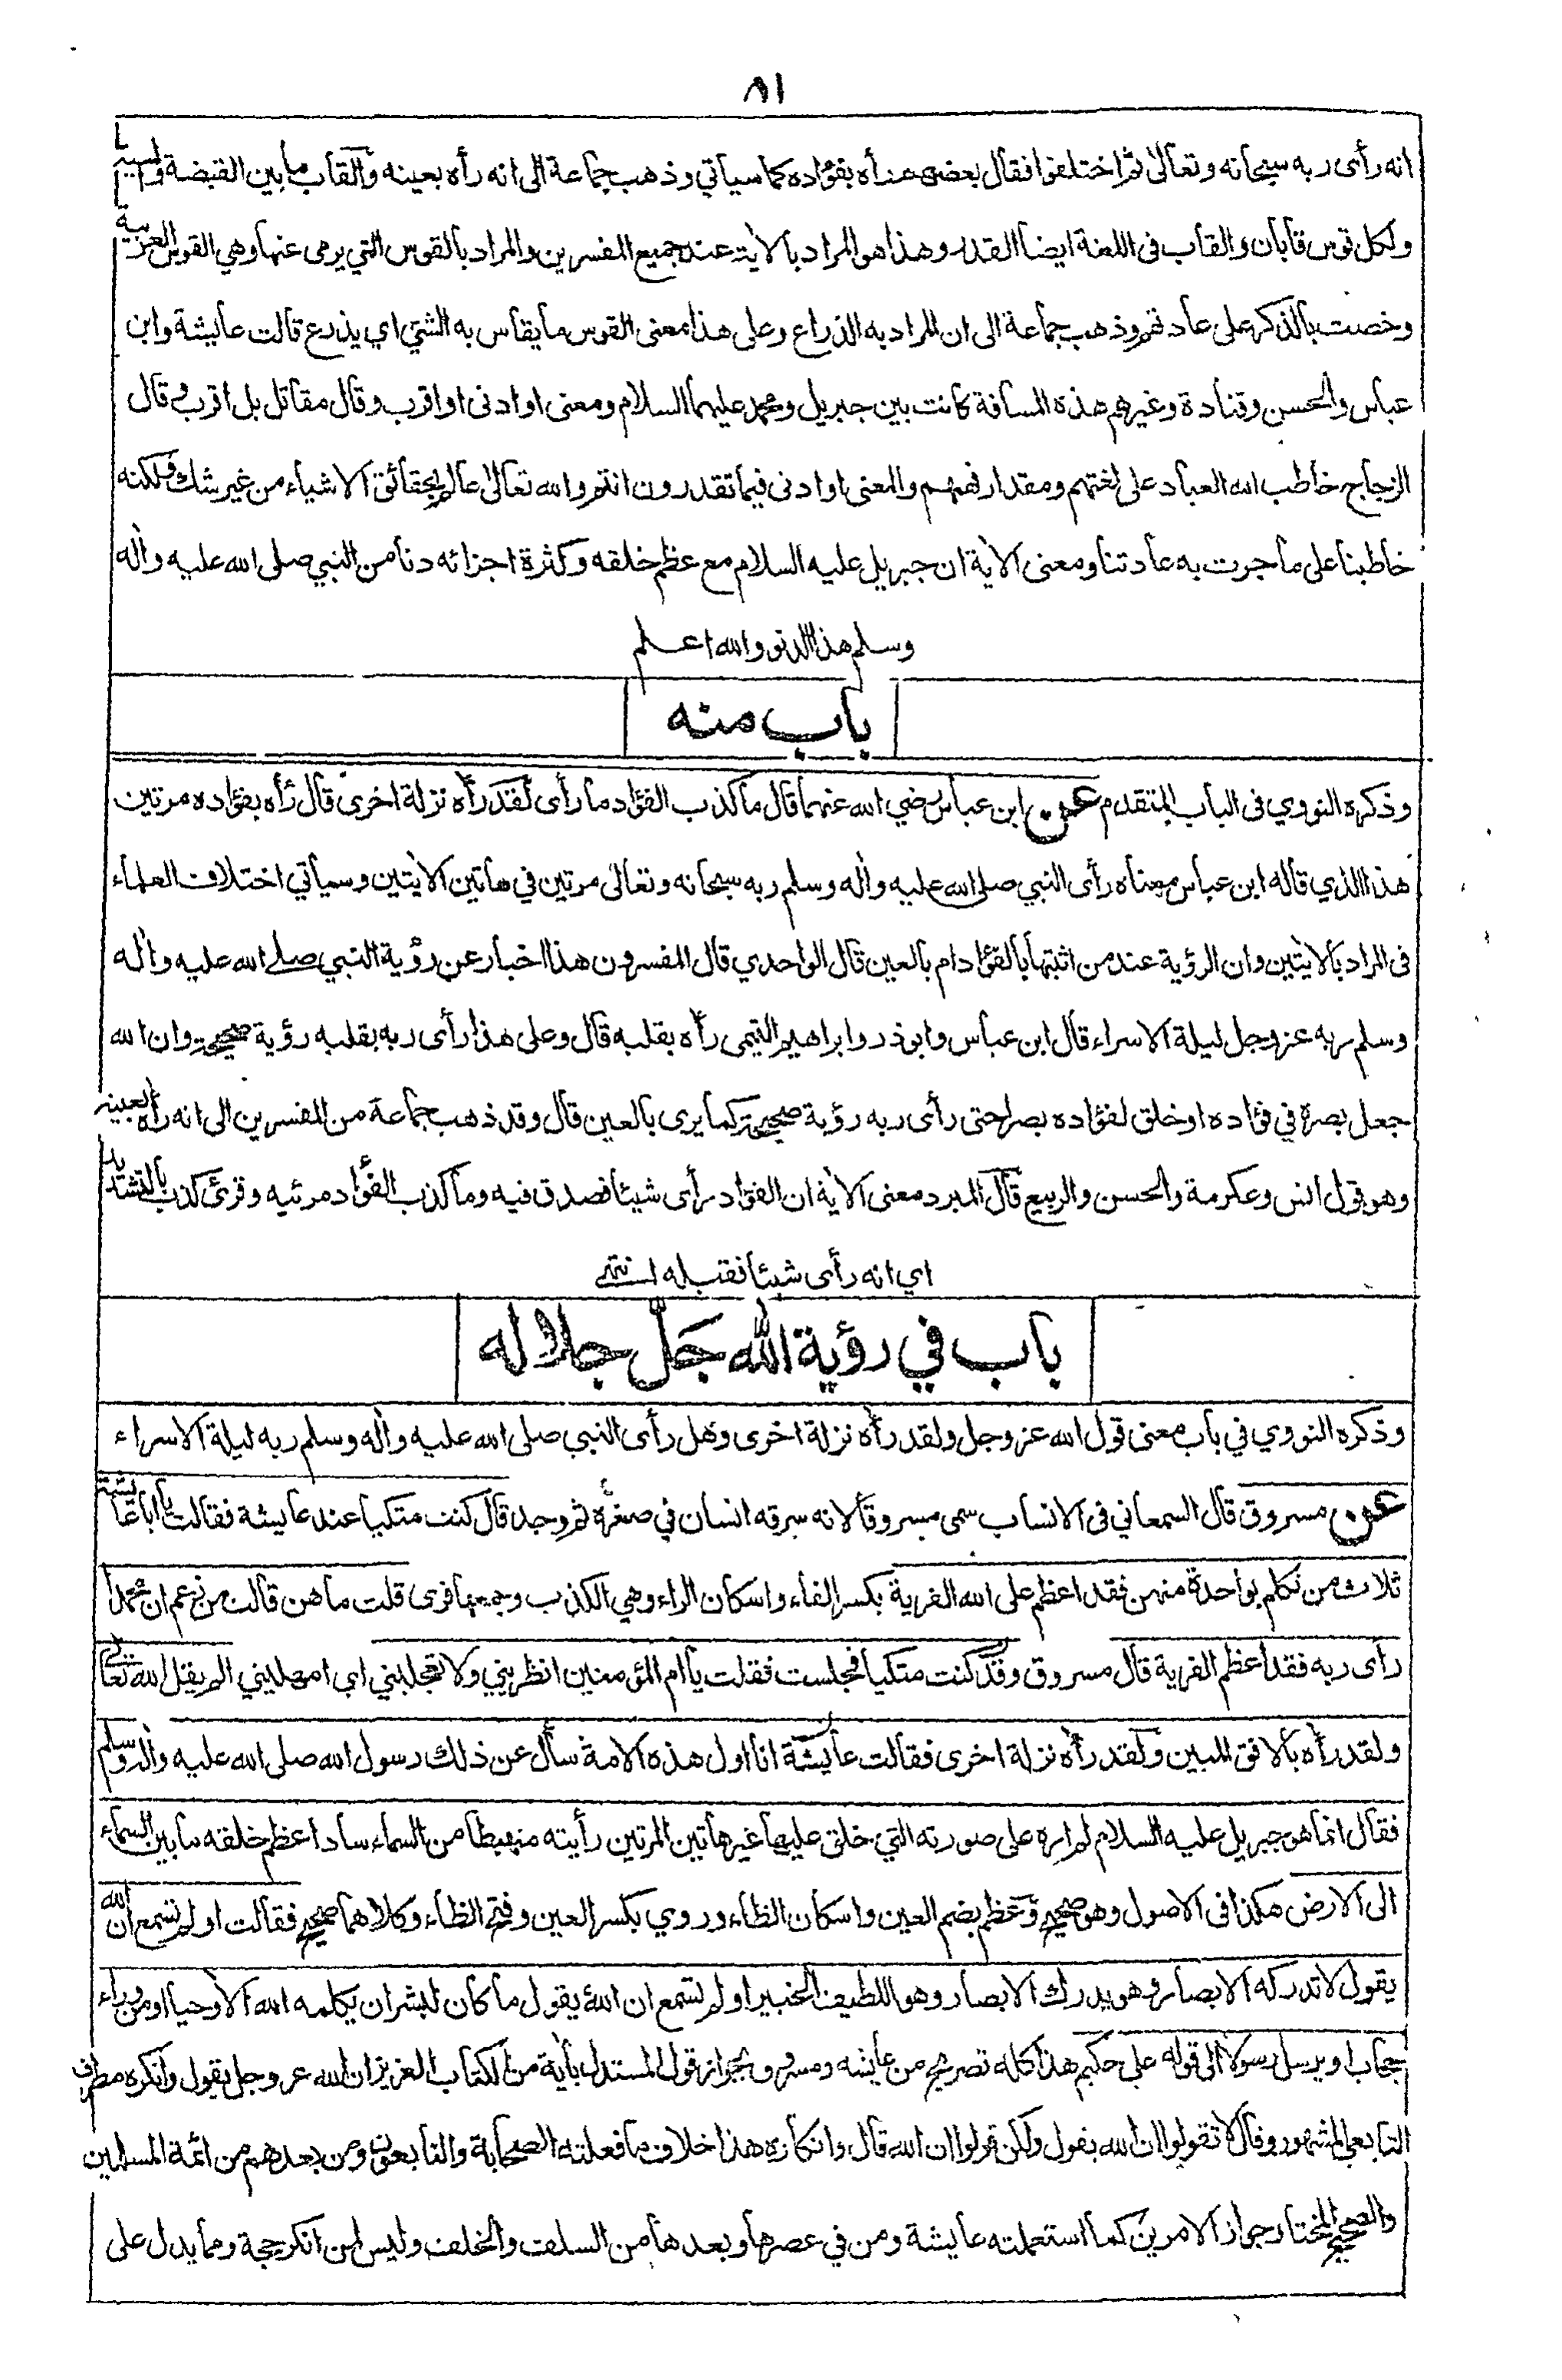 ٨١
انه رأى ربه سبحانه وتعالى ثم اختلفوا فقال بعضهم رأه بفؤاده كما سيأتي وذهب جماعة الى انه رأه بعينه والقاب ما بين القبضة والسية
ولكل قوس قابان والقاب فى اللغة ايضا القدر وهذا هو المراد بالأية عند جميع المفسرين والمراد بالقوس التي يرمى عنها وهي القوس العربية
وخصت بالذكر على عادتهم وذهب جماعة الى ان المراد به الذراع وعلى هذا معنى القوس ما يقاس به الشئ اي يذرع قالت عايشة وابن
عباس والحسن وقتادة وغيرهم هذه المسافة كانت بين جبريل ومحمد عليهما السلام ومعنى او ادنى او اقرب وقال مقاتل بل اقرب وقال
الزجاج خاطب الله العباد على لغتهم ومقدار فهمهم والمعنى او ادنى فيما تقدرون انتم والله تعالى عالم بحقائق الاشياء من غير شك ولكنه
خاطبنا على ما جرت به عادتنا ومعنى الأية ان جبريل عليه السلام مع عظم خلقه وكثرة اجزائه دنا من النبي صلى الله عليه وأله
وسلم هذا الدنو والله اعلم
باب منه
وذكره النووي فى الباب المتقدم عن ابن عباس رضي الله عنهما قال ما كذب الفؤاد ما رأى لقد رأه نزلة اخرى قال رأه بفؤاده مرتين
هذا الذي قاله ابن عباس معناه رأى النبي صلى الله عليه وأله وسلم ربه سبحانه وتعالى مرتين في هاتين الأيتين وسيأتي اختلاف العلماء
فى المراد بالأيتين وان الرؤية عند من اثبتها بالفؤاد ام بالعين قال الواحدي قال المفسرون هذا اخبار عن رؤية النبي صلى الله عليه وأله
وسلم ربه عز وجل ليلة الاسراء قال ابن عباس وابوذر وابراهيم التيمى رأه بقلبه قال وعلى هذا رأى ربه بقلبه رؤية صحيحة وان الله
جعل بصره في فؤاده او خلق لفؤاده بصرا حتى رأى ربه رؤية صحيحة كما يرى بالعين قال وقد ذهب جماعة من المفسرين الى انه رأه بعينه
وهو قول انس وعكرمة والحسن والربيع قال المبرد معنى الأية ان الفؤاد رأى شيئا فصدق فيه وما كذب الفؤاد مرئيه وقرئ كذب بالتشديد
اي انه رأى شيئا فقبله انتهى
باب في رؤية الله جَلّ جلاله
وذكره النووي في باب معنى قول الله عز وجل ولقد رأه نزلة اخرى وهل رأى النبي صلى الله عليه وأله وسلم ربه ليلة الاسراء
عن مسروق قال السمعاني فى الانساب سمى مسروقا لانه سرقه انسان في صغره ثم وجد قال كنت متكيا عند عايشة فقالت يا ابا عايشة
ثلاث من تكلم بواحدة منهن فقد اعظم على الله الفرية بكسر الفاء واسكان الراء وهي الكذب وجمعها فرى قلت ما هن قالت من زعم ان محمدا
رأى ربه فقد اعظم الفرية قال مسروق وقد كنت متكيا فجلست فقلت يا ام المؤمنين انظريني ولا تعجليني اي امهليني الم يقل الله تعالى
ولقد رأه بالافق المبين ولقد رأه نزلة اخرى فقالت عايشة انا اول هذه الامة سأل عن ذلك رسول الله صلى الله عليه وأله وسلم
فقال انما هو جبريل عليه السلام لم اره على صورته التي خلق عليها غير هاتين المرتين رأيته منهبطا من السماء سادا عظم خلقه ما بين السماء
الى الارض هكذا فى الاصول وهو صحيح وعظم بضم العين واسكان الظاء وروي بكسر العين وفتح الظاء وكلاهما صحيح فقالت اولم تسمع ان الله
يقول لا تدركه الابصار وهو يدرك الابصار وهو اللطيف الخبير اولم تسمع ان الله يقول ما كان لبشر ان يكلمه الله الا وحيا او من وراء
حجاب او يرسل رسولا الى قوله علي حكيم هذا كله تصريح من عايشة ومسروق بجواز قول المستدل بأية من الكتاب العزيز ان الله عز وجل يقول وانكره مطرف
التابعي المشهور وقال لا تقولوا ان الله يقول ولكن قولوا ان الله قال وانكاره هذا خلاف ما فعلته الصحابة والتابعون ومن بعدهم من ائمة المسلمين
والصحيح المختار جواز الامرين كما استعملته عايشة ومن في عصرها وبعدها من السلف والخلف وليس لمن انكر حجة ومما يدل على